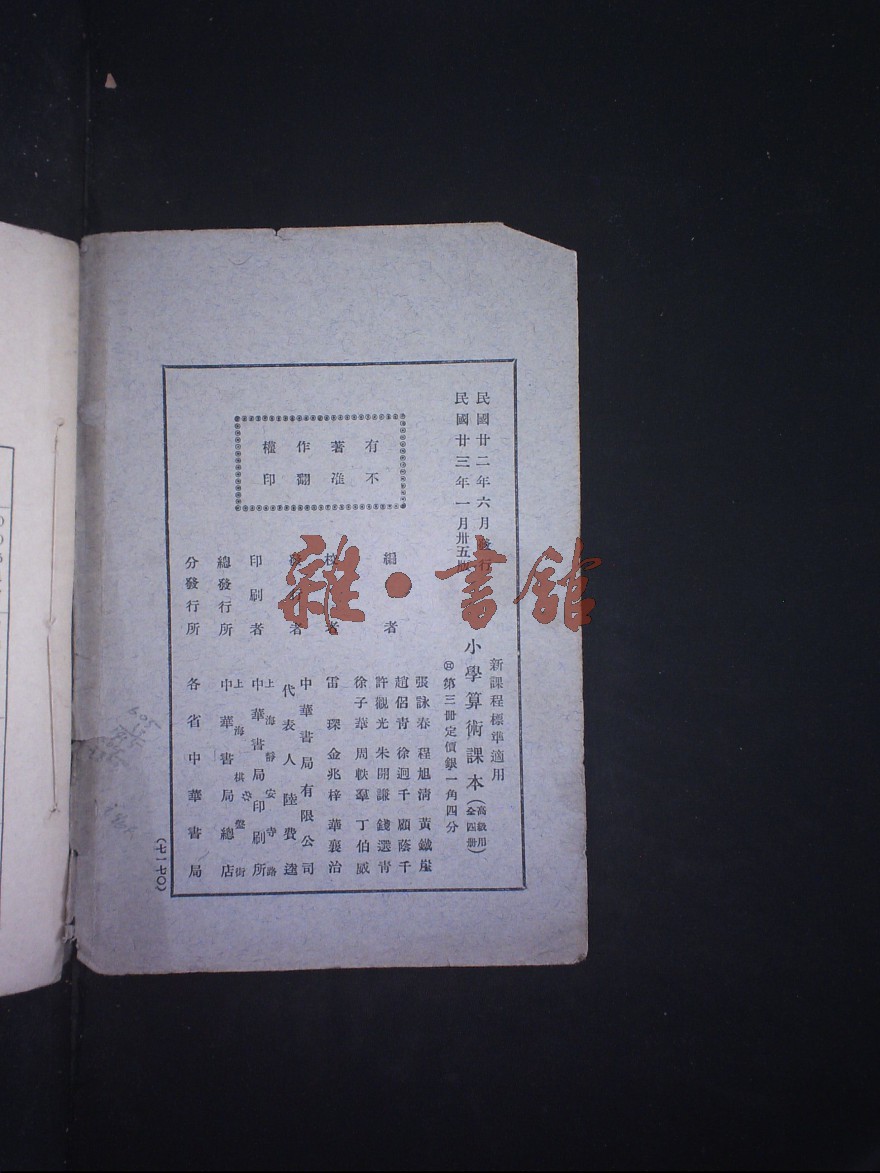 民國廿二年六月發行
民國廿三年一月卅五版
新課程標準適用
小學算術課本(高級用 全四冊)
第三冊定價銀一角四分
有著作權
不准翻印
編者
張詠春 程旭清 黃鐵崖
趙侶青 徐迥千 顧蔭千
許觀光 朱開謙 錢選青
徐子華 周軼羣 丁伯威
校者
雷琛 金兆梓 華襄治
發行者
中華書局有限公司
代表人 陸費逵
印刷者
上海靜安寺路
中華書局印刷所
總發行所
上海棋盤街
中華書局總店
分發行所
各省中華書局
(七一七〇)
雜·書館